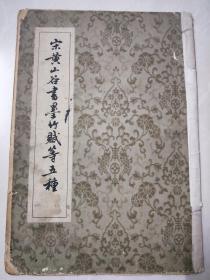 宋黄山谷書墨竹賦等五種